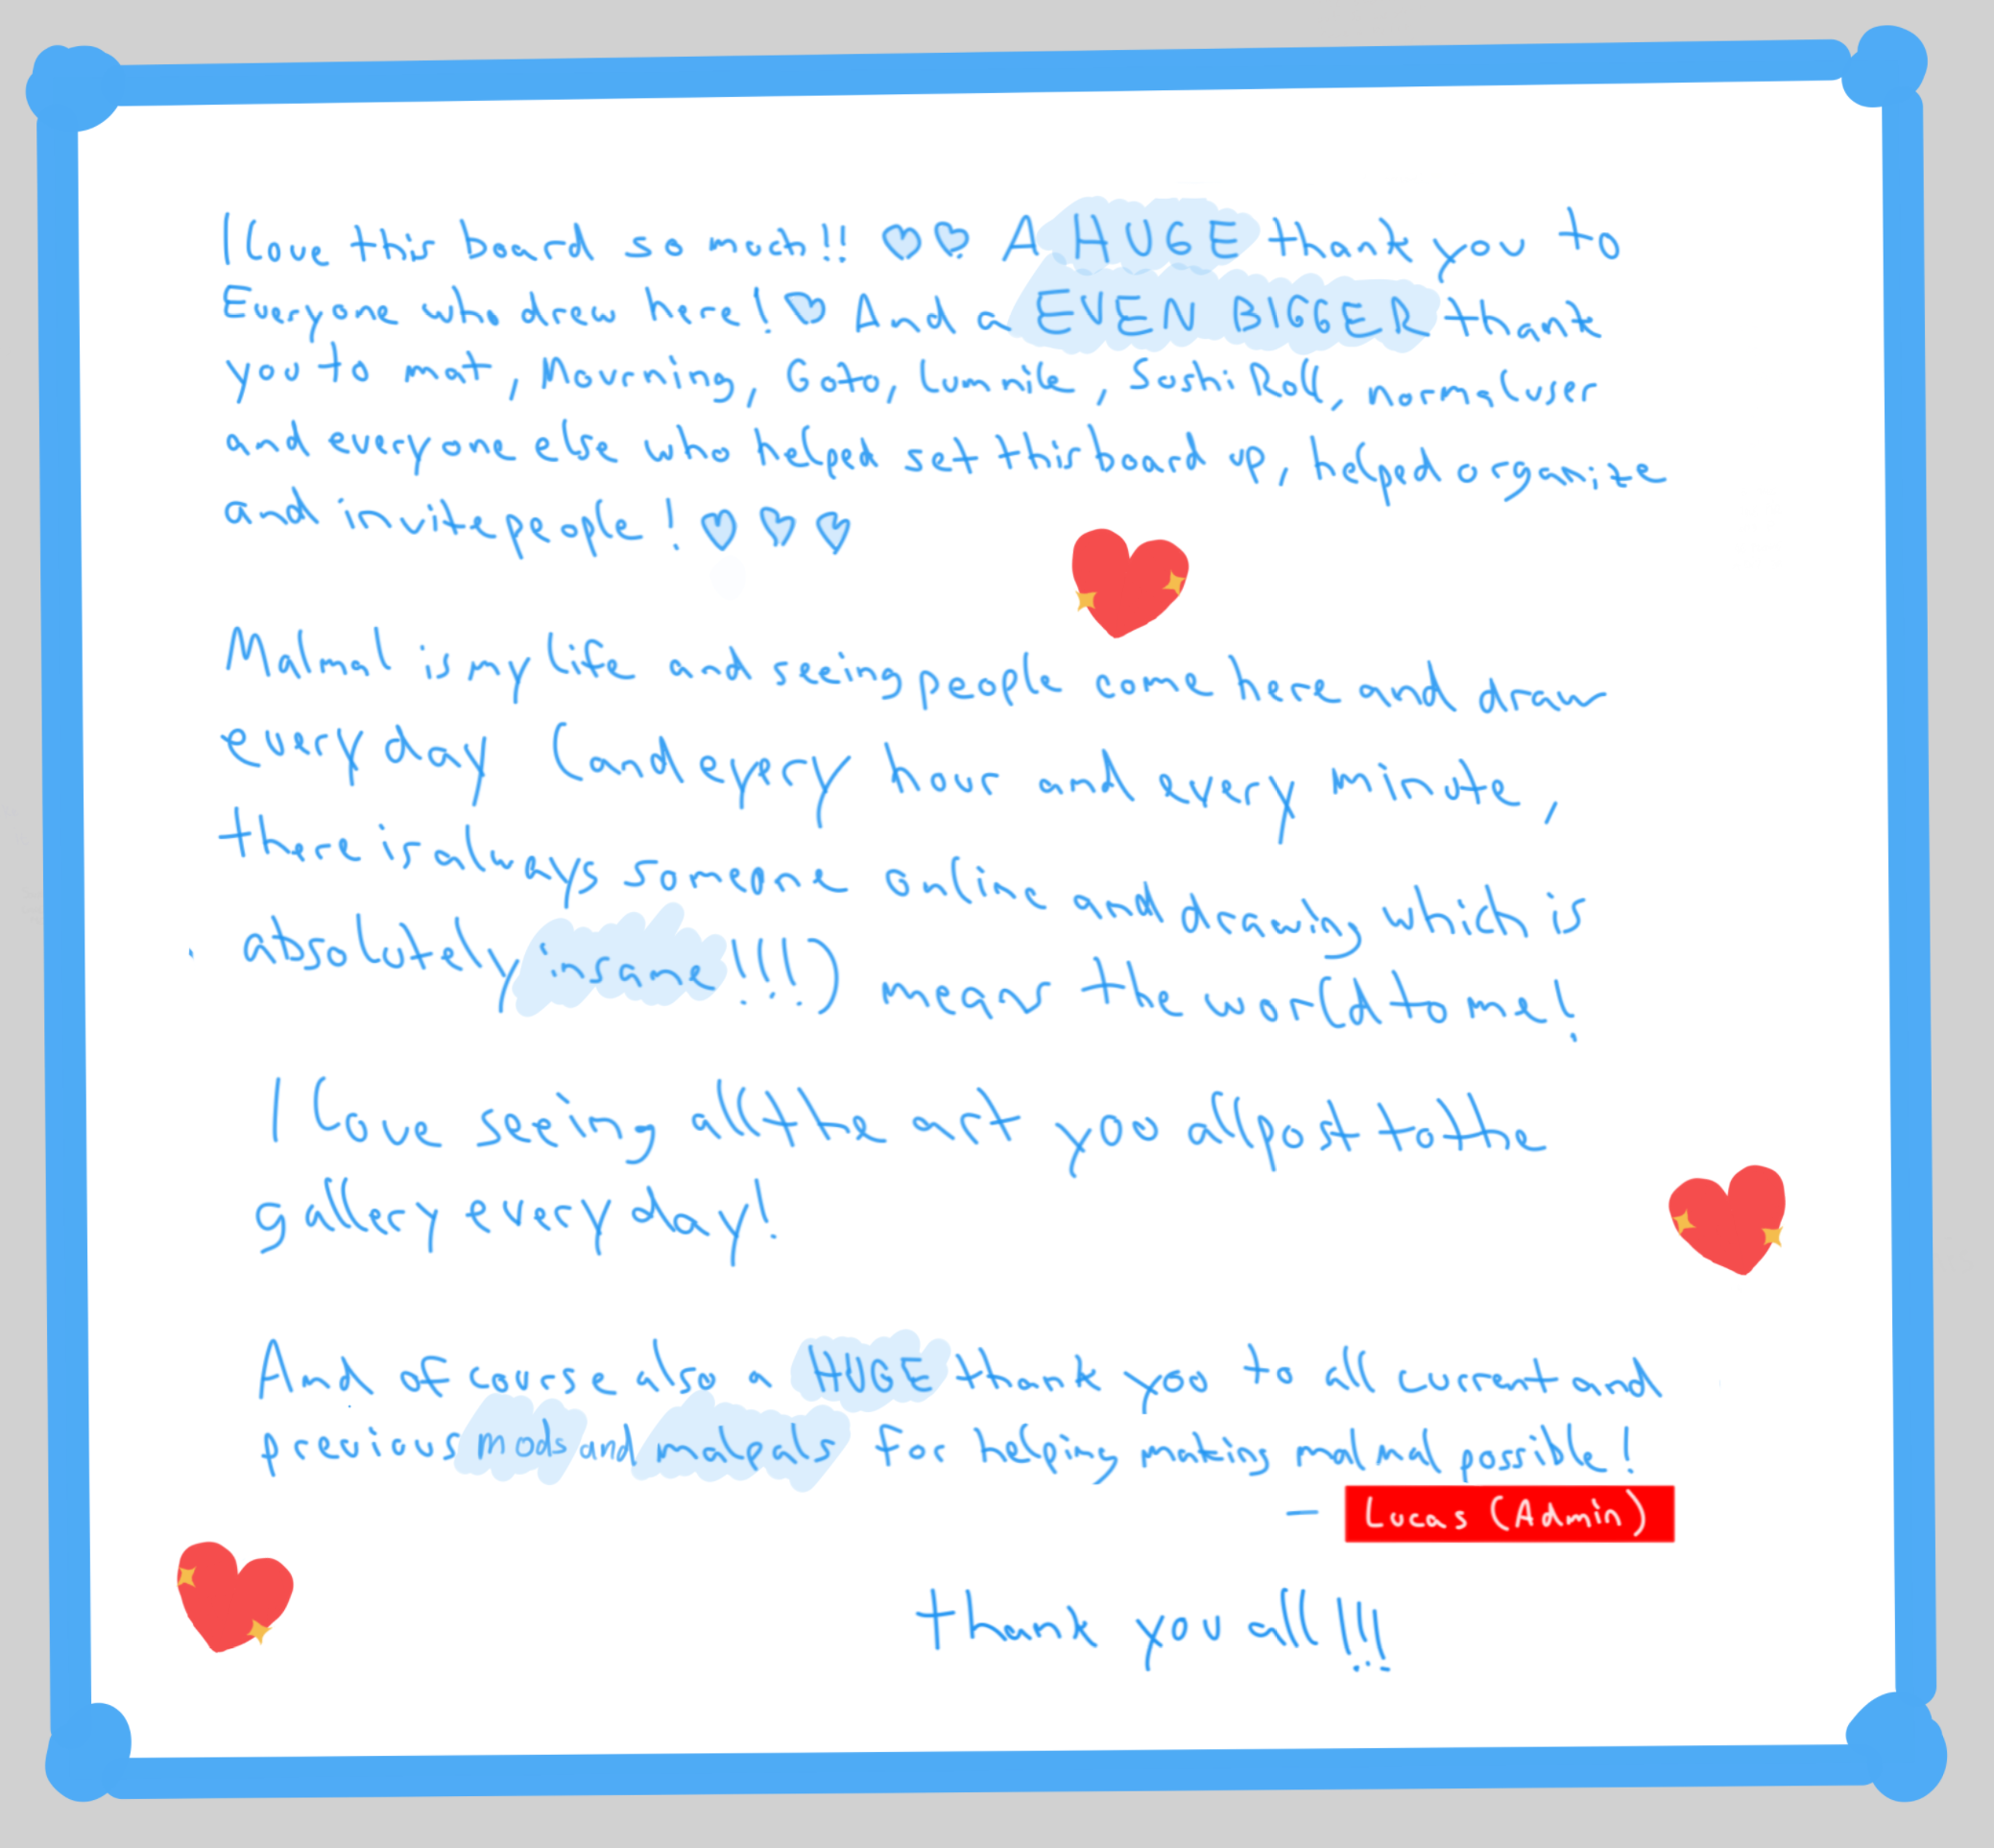 I love this board so much!! ♡♡ A HUGE thank you to
Everyone who drew here! ♡ And a EVEN BIGGER thank
you to mat, Mourning, Goto, Lumnile, Sushi Roll, normaluser
and everyone else who helped set this board up, helped organize
and invite people! ♡ ♡ ♡
Malmal is my life and seeing people come here and draw
every day (and every hour and every minute,
there is always someone online and drawing which is
absolutely insane!!!) means the world to me!
I love seeing all the art you all post to the
gallery every day!
And of course also a HUGE thank you to all current and
previous mods and malpals for helping making malmal possible!
— Lucas (Admin)
thank you all!!!